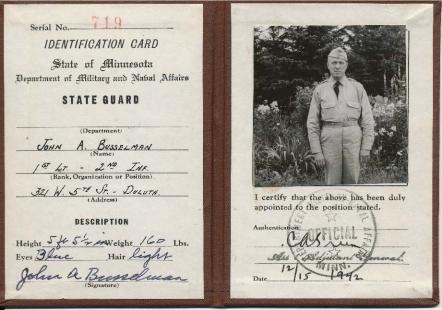 Serial No. 719
IDENTIFICATION CARD
State of Minnesota
Department of Military and Naval Affairs
STATE GUARD
(Department)
JOHN A. BUSSELMAN
(Name)
1ST LT - 2ND INF.
(Rank, Organization or Position)
321 W. 5TH ST. - DULUTH.
(Address)
DESCRIPTION
Height 5 ft 5 1/2 in Weight 160 Lbs.
Eyes Blue Hair light
John A Busselman
(Signature)
I certify that the above has been duly
appointed to the position stated.
Authentication
OFFICIAL
Adjutant General
MINN.
Date 12/15 1942